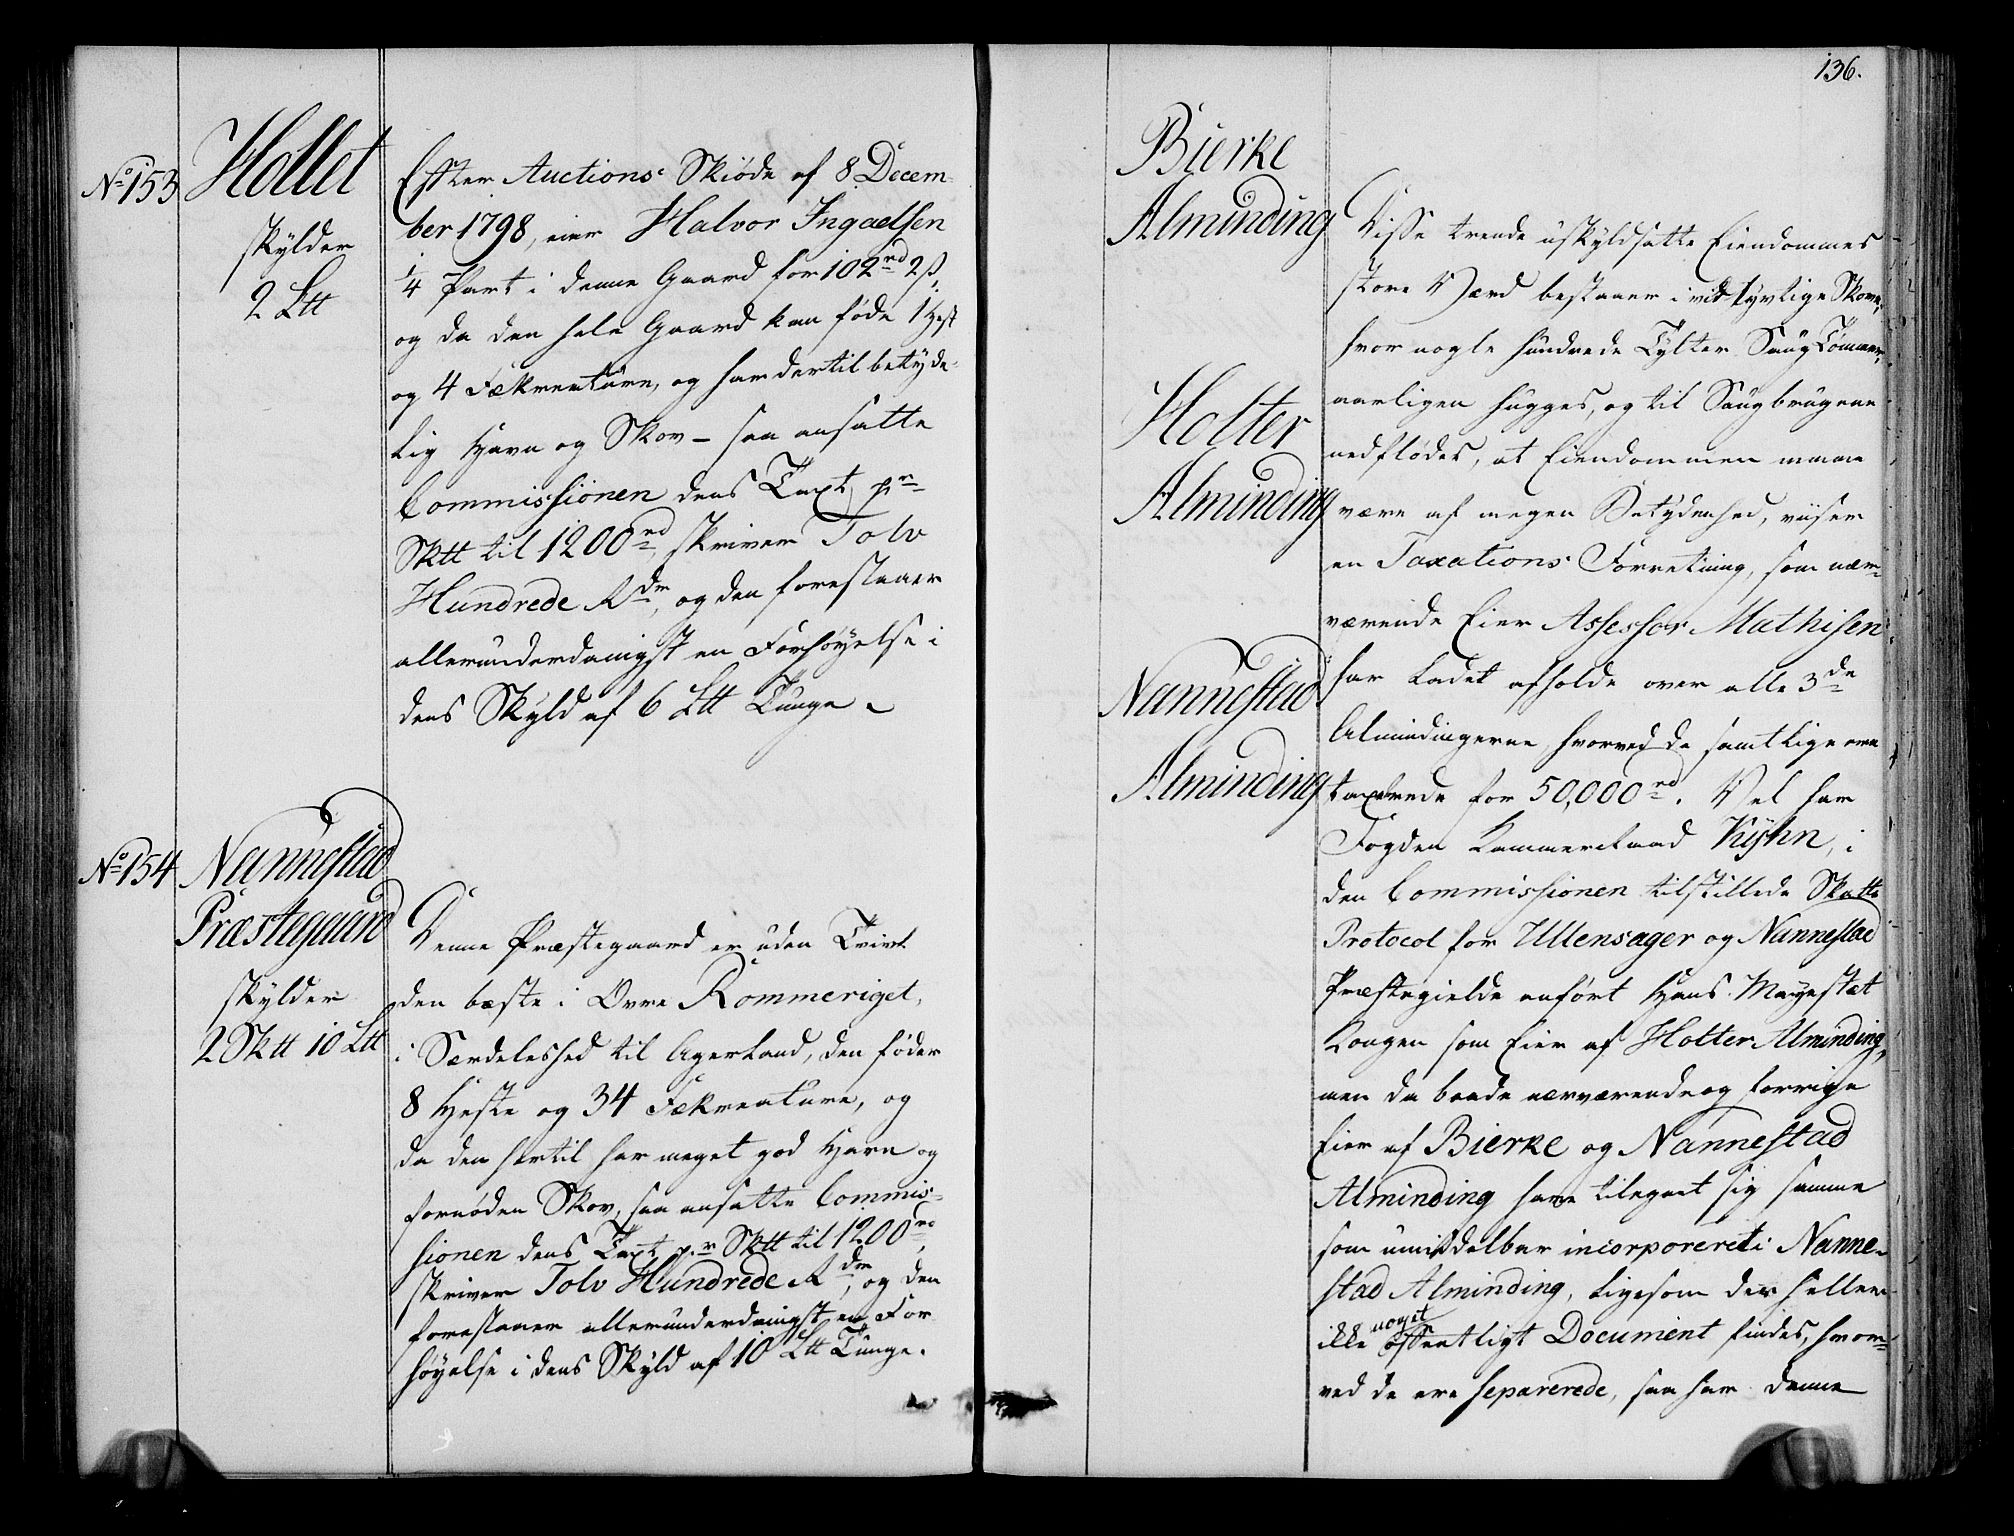 No 153
Hollet
skylder
2 Ltt
Efter Auctions Skiøde af 8 Decem-
ber 1798, eier Halvor Ingaelsen
1/4 Part i denne Gaard for 102 rd 2 ß,
og da den hele Gaard kan føde 1 Hest
og 4 Fækreature, og har dertil betyde-
lig Havn og Skov – saa ansatte
Commissionen dens Taxt pr
Sktt til 1200 rd, skriver Tolv
Hundrede Rdr, og den forestaaer
allerunderdanigst en Forhøyelse i
dens Skyld af 6 Ltt Tunge –
No 154
Nannestad
Præstegaard
skylder
2 Sktt 10 Ltt
Denne Præstegaard er uden Tvivl
den bæste i Øvre Rommeriget,
i Særdeleshed til Agerland, den føder
8 Heste og 34 Fækreature, og
da den hertil har meget god Havn og
fornøden Skov, saa ansatte Commis-
sionen dens Taxt pr Sktt til 1200 rd,
skriver Tolv Hundrede Rdr, og den
forestaaer allerunderdanigst en For
høyelse i dens Skyld af 10 Ltt Tunge.
136.
Bierke
Alminding
Holter
Alminding
Nannestad
Alminding
Disse trende uskyldsatte Eiendommes
store Værd bestaaer i vidtløvlige Skove,
hvor nogle hundrede Tylter Saug Tømmer,
aarligen hugges, og til Saugbrugene
nedflødes, at Eiendommen maae
være af megen Betydenhed, viiser
en Taxations Forretning, som nær-
værende Eier Assessor Mathisen
har ladet afholde over alle 3de
Almindingerne, hvorved de samtlige ere
taxerede for 50,000 rd. Vel har
Fogden Kammerraad Kyhn, i
den Commissionen tilstillede Skatte
Protocol for Ullensager og Nannestad
Præstegielde anført Hans Mayestæt
Kongen som Eier af Holter Alminding,
men da baade nærværende og forrige
Eier af Bierke og Nannestad
Alminding have tilegnet sig samme
som umiddelbar incorporeret i Nanne-
stad Alminding, ligesom der heller
ikke noget offentligt Document findes, hvor-
ved de ere separerede, saa har denne